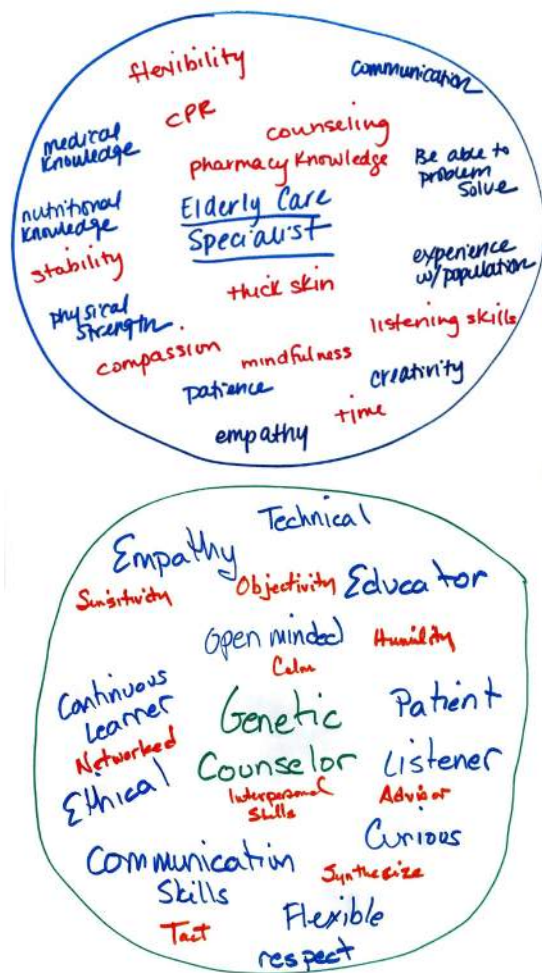 flexibility
communication
CPR
medical
knowledge
counseling
pharmacy knowledge
Be able to
problem
solve
nutritional
knowledge
Elderly Care
Specialist
stability
experience
w/population
thick skin
physical
strength
listening skills
compassion
mindfulness
patience
creativity
time
empathy
Technical
Empathy
Sensitivity
Objectivity
Educator
Open minded
Humility
Calm
Continuous
Learner
Genetic
Patient
Networked
Counselor
Listener
Ethical
Interpersonal
Skills
Advisor
Curious
Communication
Skills
Synthesize
Tact
Flexible
respect